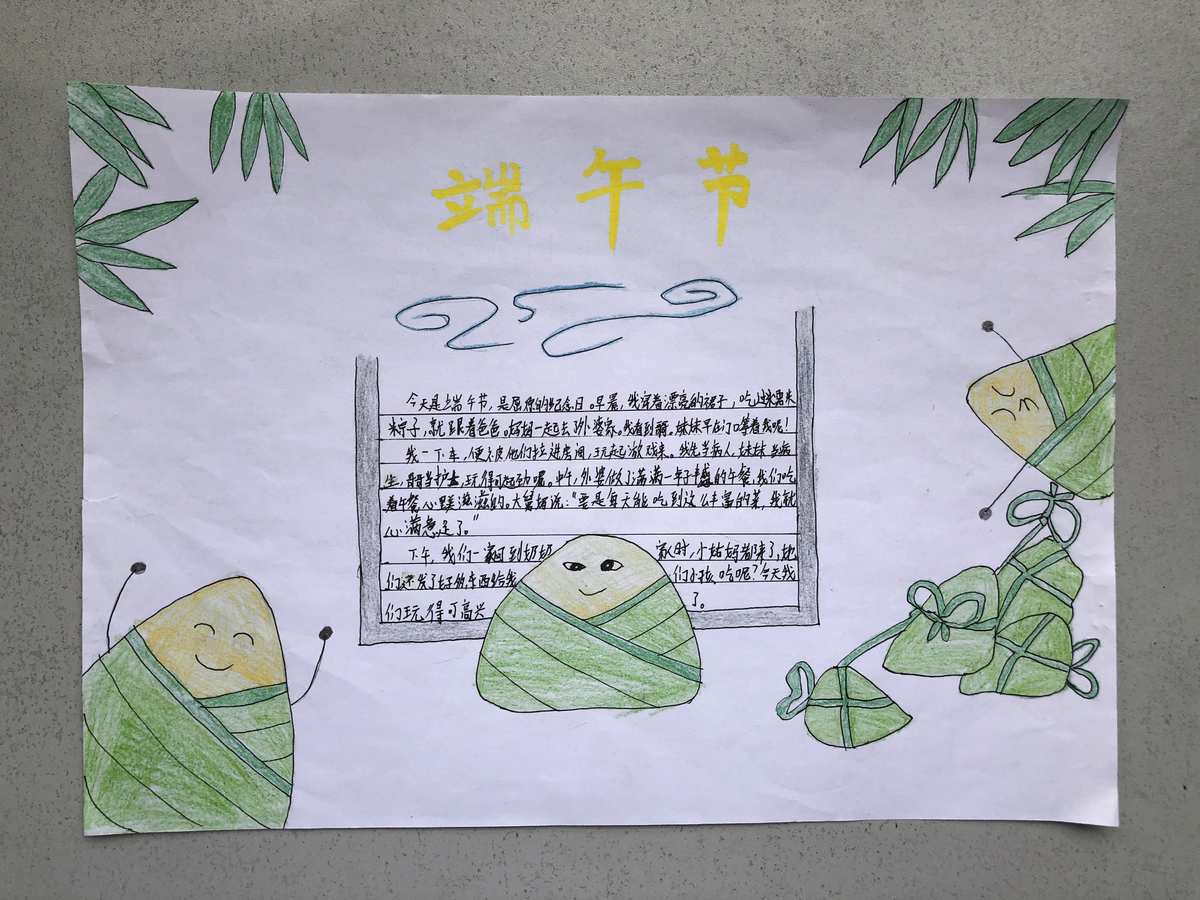 端午节
今天是端午节，是屈原的纪念日。早晨，我穿着漂亮的裙子，吃过
粽子，就跟着爸爸。妈妈一起去外婆家。我看到哥。妹妹早在门口等着我呢！
我一下车，便被他们拉进房间，玩起游戏来。我先当病人，妹妹当医
生，哥哥当护士，玩得可起劲呢。中午，外婆做了满满一桌子丰盛的午餐，我们吃
着午餐，心里美滋滋的。大舅妈说："要是每天能吃到这么丰富的菜，我就
心满意足了。"
下午，我们一家回到奶奶 家时，小姑妈都来了，她
们还发了好的东西给我 们小孩吃呢？今天我
们玩得可高兴 了。